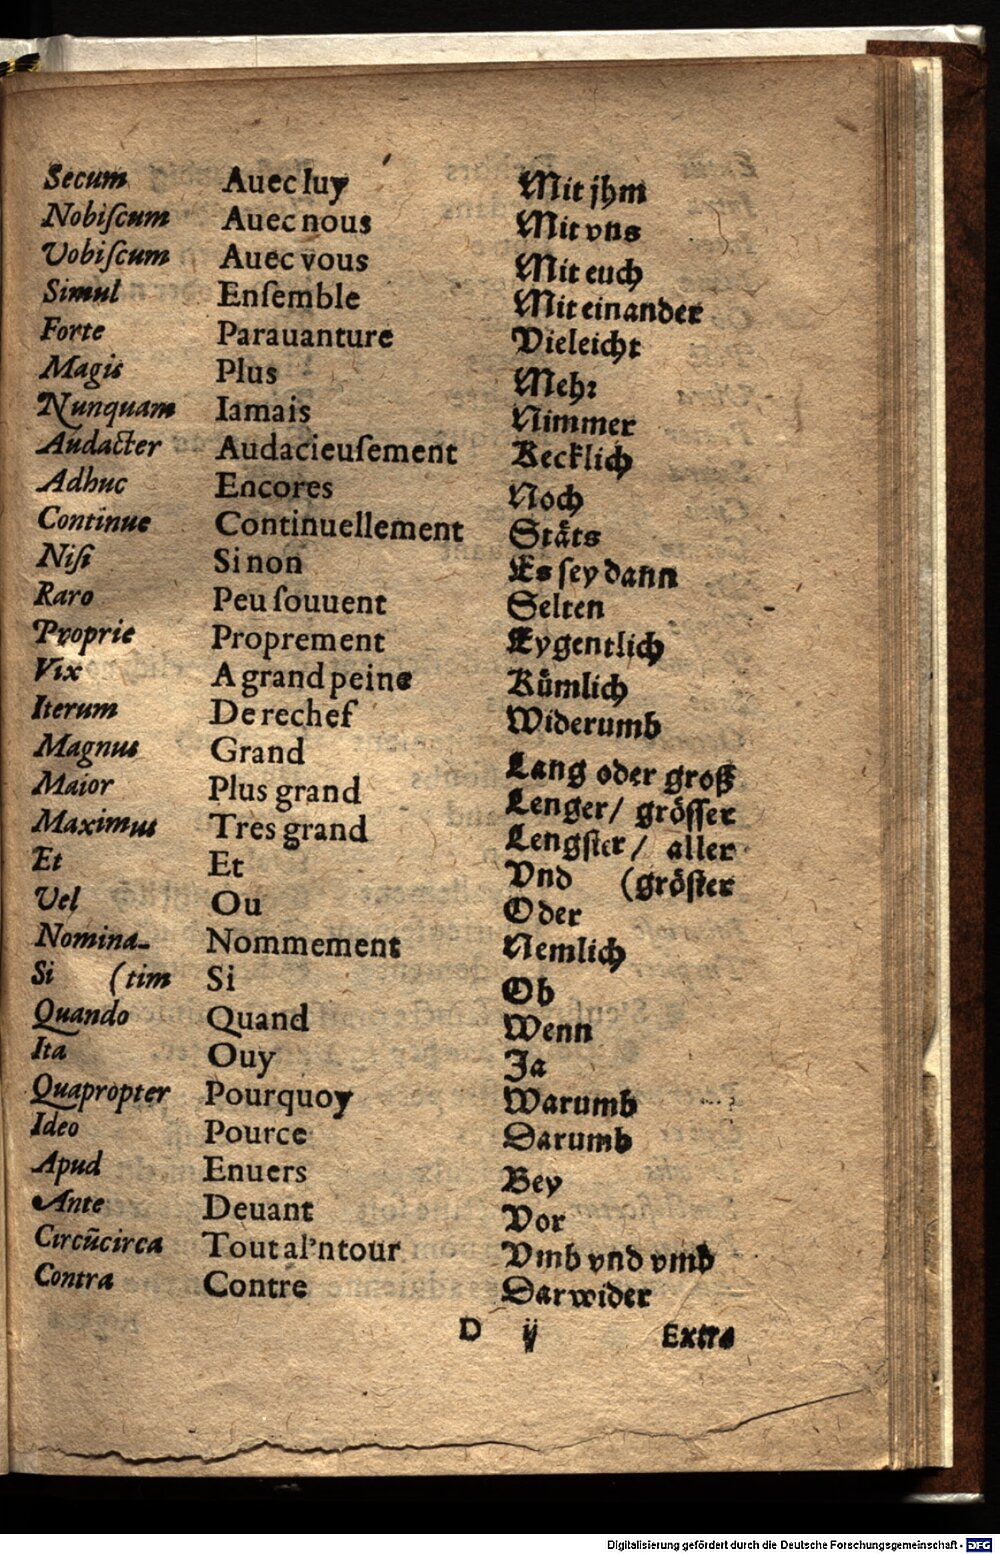 Secum Auec luy Mit jhm
Nobiſcum Auec nous Mit vns
Vobiſcum Auec vous Mit euch
Simul Enſemble Mit einander
Forte Parauanture Vieleicht
Magis Plus Mehr
Nunquam Iamais Nimmer
Audacter Audacieuſement Kecklich
Adhuc Encores Noch
Continue Continuellement Stäts
Niſi Sinon Es ſey dann
Raro Peu ſouuent Selten
Proprie Proprement Eygentlich
Vix A grand peine Kümlich
Iterum De rechef Widerumb
Magnus Grand Lang oder groß
Maior Plus grand Lenger/ gröſſer
Maximus Tres grand Lengſter/ aller
Et Et Vnd (gröſter
Vel Ou Oder
Nomina- Nommement Nemlich
Si (tim Si Ob
Quando Quand Wenn
Ita Ouy Ja
Quapropter Pourquoy Warumb
Ideo Pource Darumb
Apud Enuers Bey
Ante Deuant Vor
Circũcirca Tout al'ntour Vmb vnd vmb
Contra Contre Darwider
D ij Extra
Digitalisierung gefördert durch die Deutsche Forschungsgemeinschaft - DFG